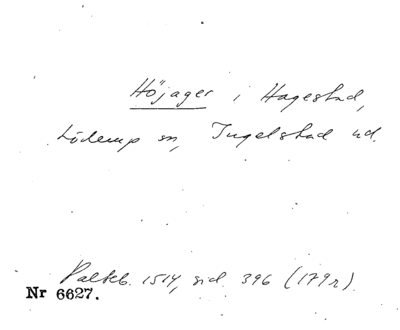 Höjager i Hagestad,
Löderup sn, Ingelstad hd.
Palteb. 1514, sid. 396 (179r).
Nr 6627.